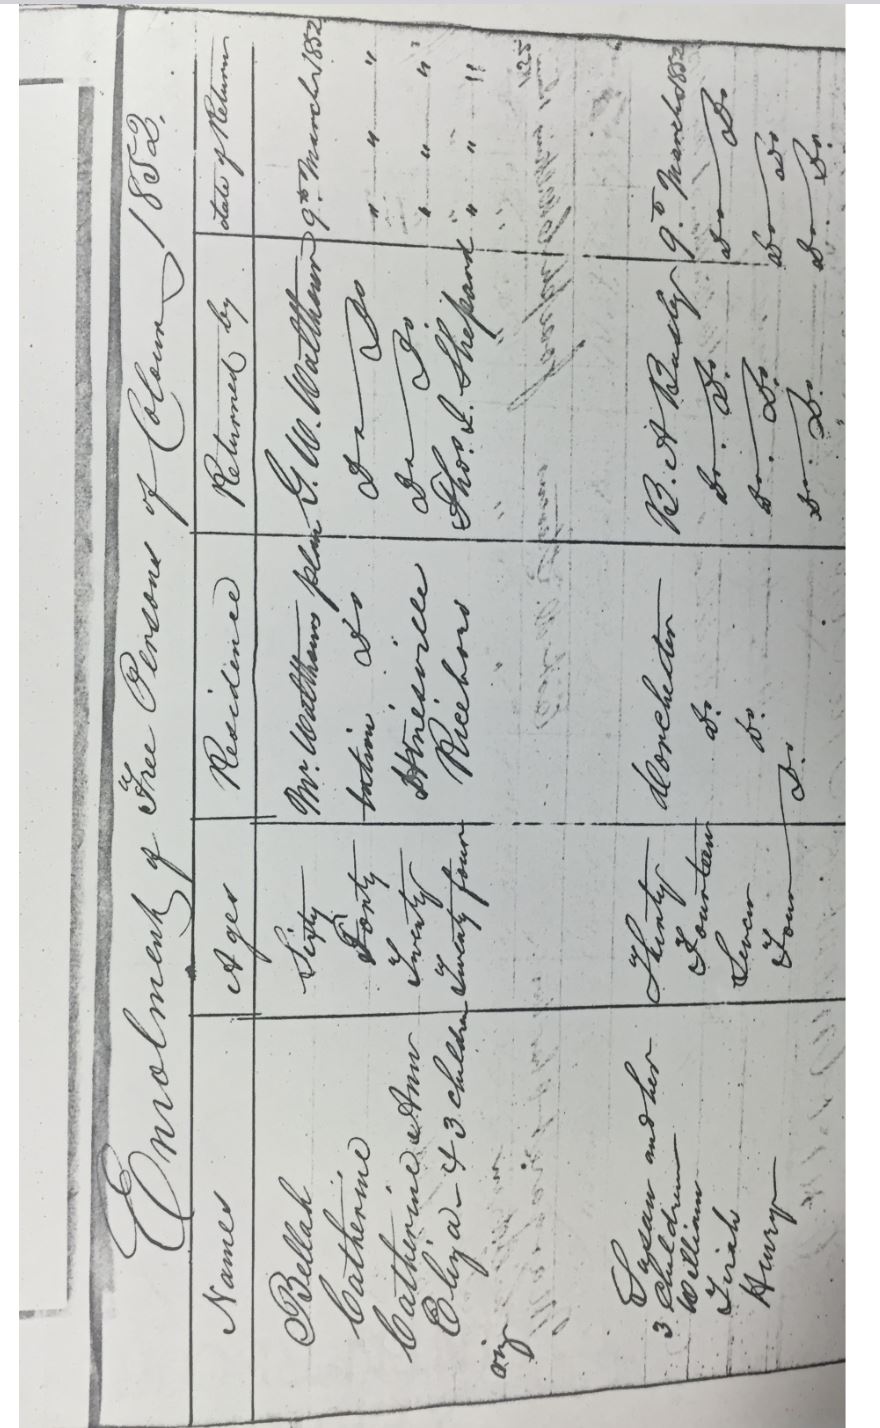 Enrolment of Free Persons of Colour 1852.
Names Ages Residence Returned by date of Return
Bellah Sixty Mr. Walthours plan G. W. Walthour 9th March 1852
Catherine Forty tation Do Do Do " " "
Catherine Ann Twenty Hinesville Do Do " " "
Eliza - & 3 children Twenty four Riceboro Thos. S. Shepard " " "
viz
Susan and her Thirty Dorchester B. A Busby 9th March 1852
3 children
William Fourteen Do. Do. Do. Do Do
Seven Do. Do. Do. Do Do
Henry Four Do. Do. Do. Do. Do.